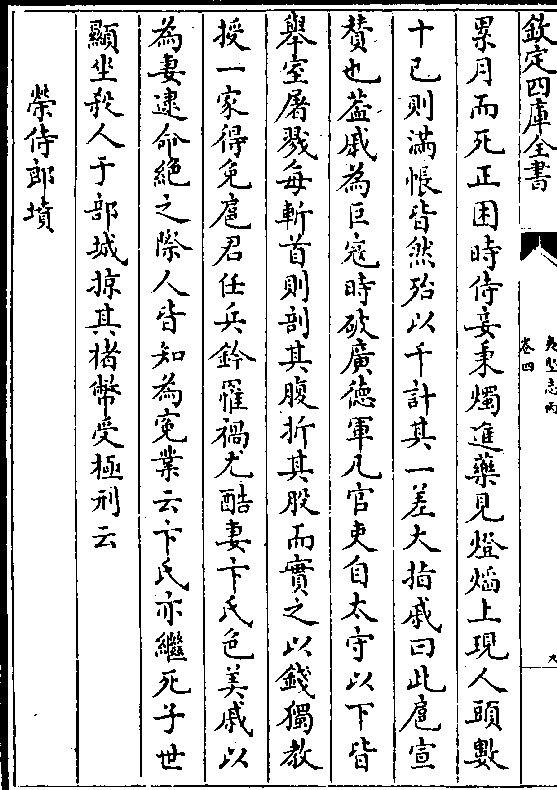 欽定四庫全書
夷堅志丙
卷四
九
累月而死正困時侍妾秉燭進藥見燈熖上現人頭數
十已則滿帳皆然殆以千計其一差大指戚曰此扈宣
贊也葢戚為巨寇時破廣德軍凡官吏自太守以下皆
舉室屠戮每斬首則剖其腹折其股而實之以錢獨教
授一家得免扈君任兵鈐罹禍尤酷妻卞氏色美戚以
為妻逮命絶之際人皆知為寃業云卞氏亦繼死子世
顯坐殺人于部城掠其楮幣受極刑云
榮侍郎墳